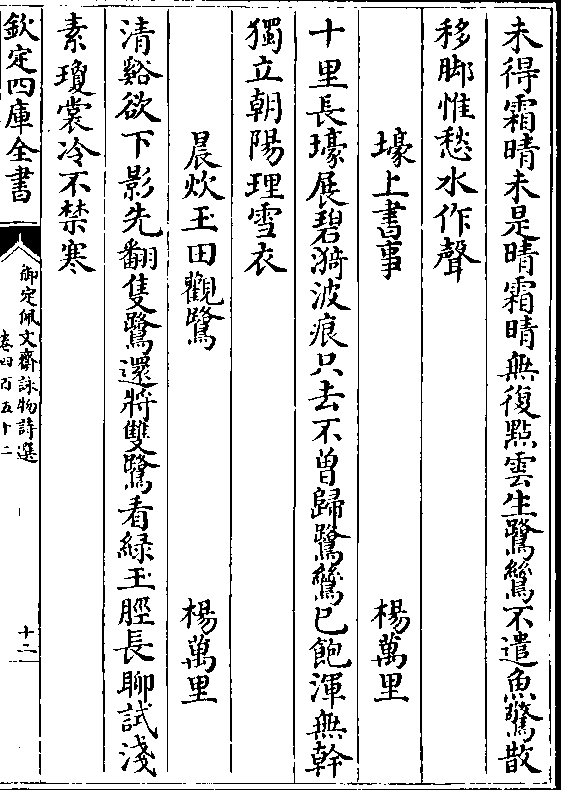 未得霜晴未是晴霜晴無復㸃雲生鷺鷥不遣魚驚散
移脚惟愁水作聲
壕上書事　楊萬里
十里長壕展碧漪波痕只去不曽歸鷺鷥已飽渾無幹
獨立朝陽理雪衣
晨炊玉田觀鷺　楊萬里
清谿欲下影先翻隻鷺還將雙鷺看緑玉脛長聊試淺
素瓊裳冷不禁寒
欽定四庫全書
御定佩文齋詠物詩選
卷四百五十二
十二